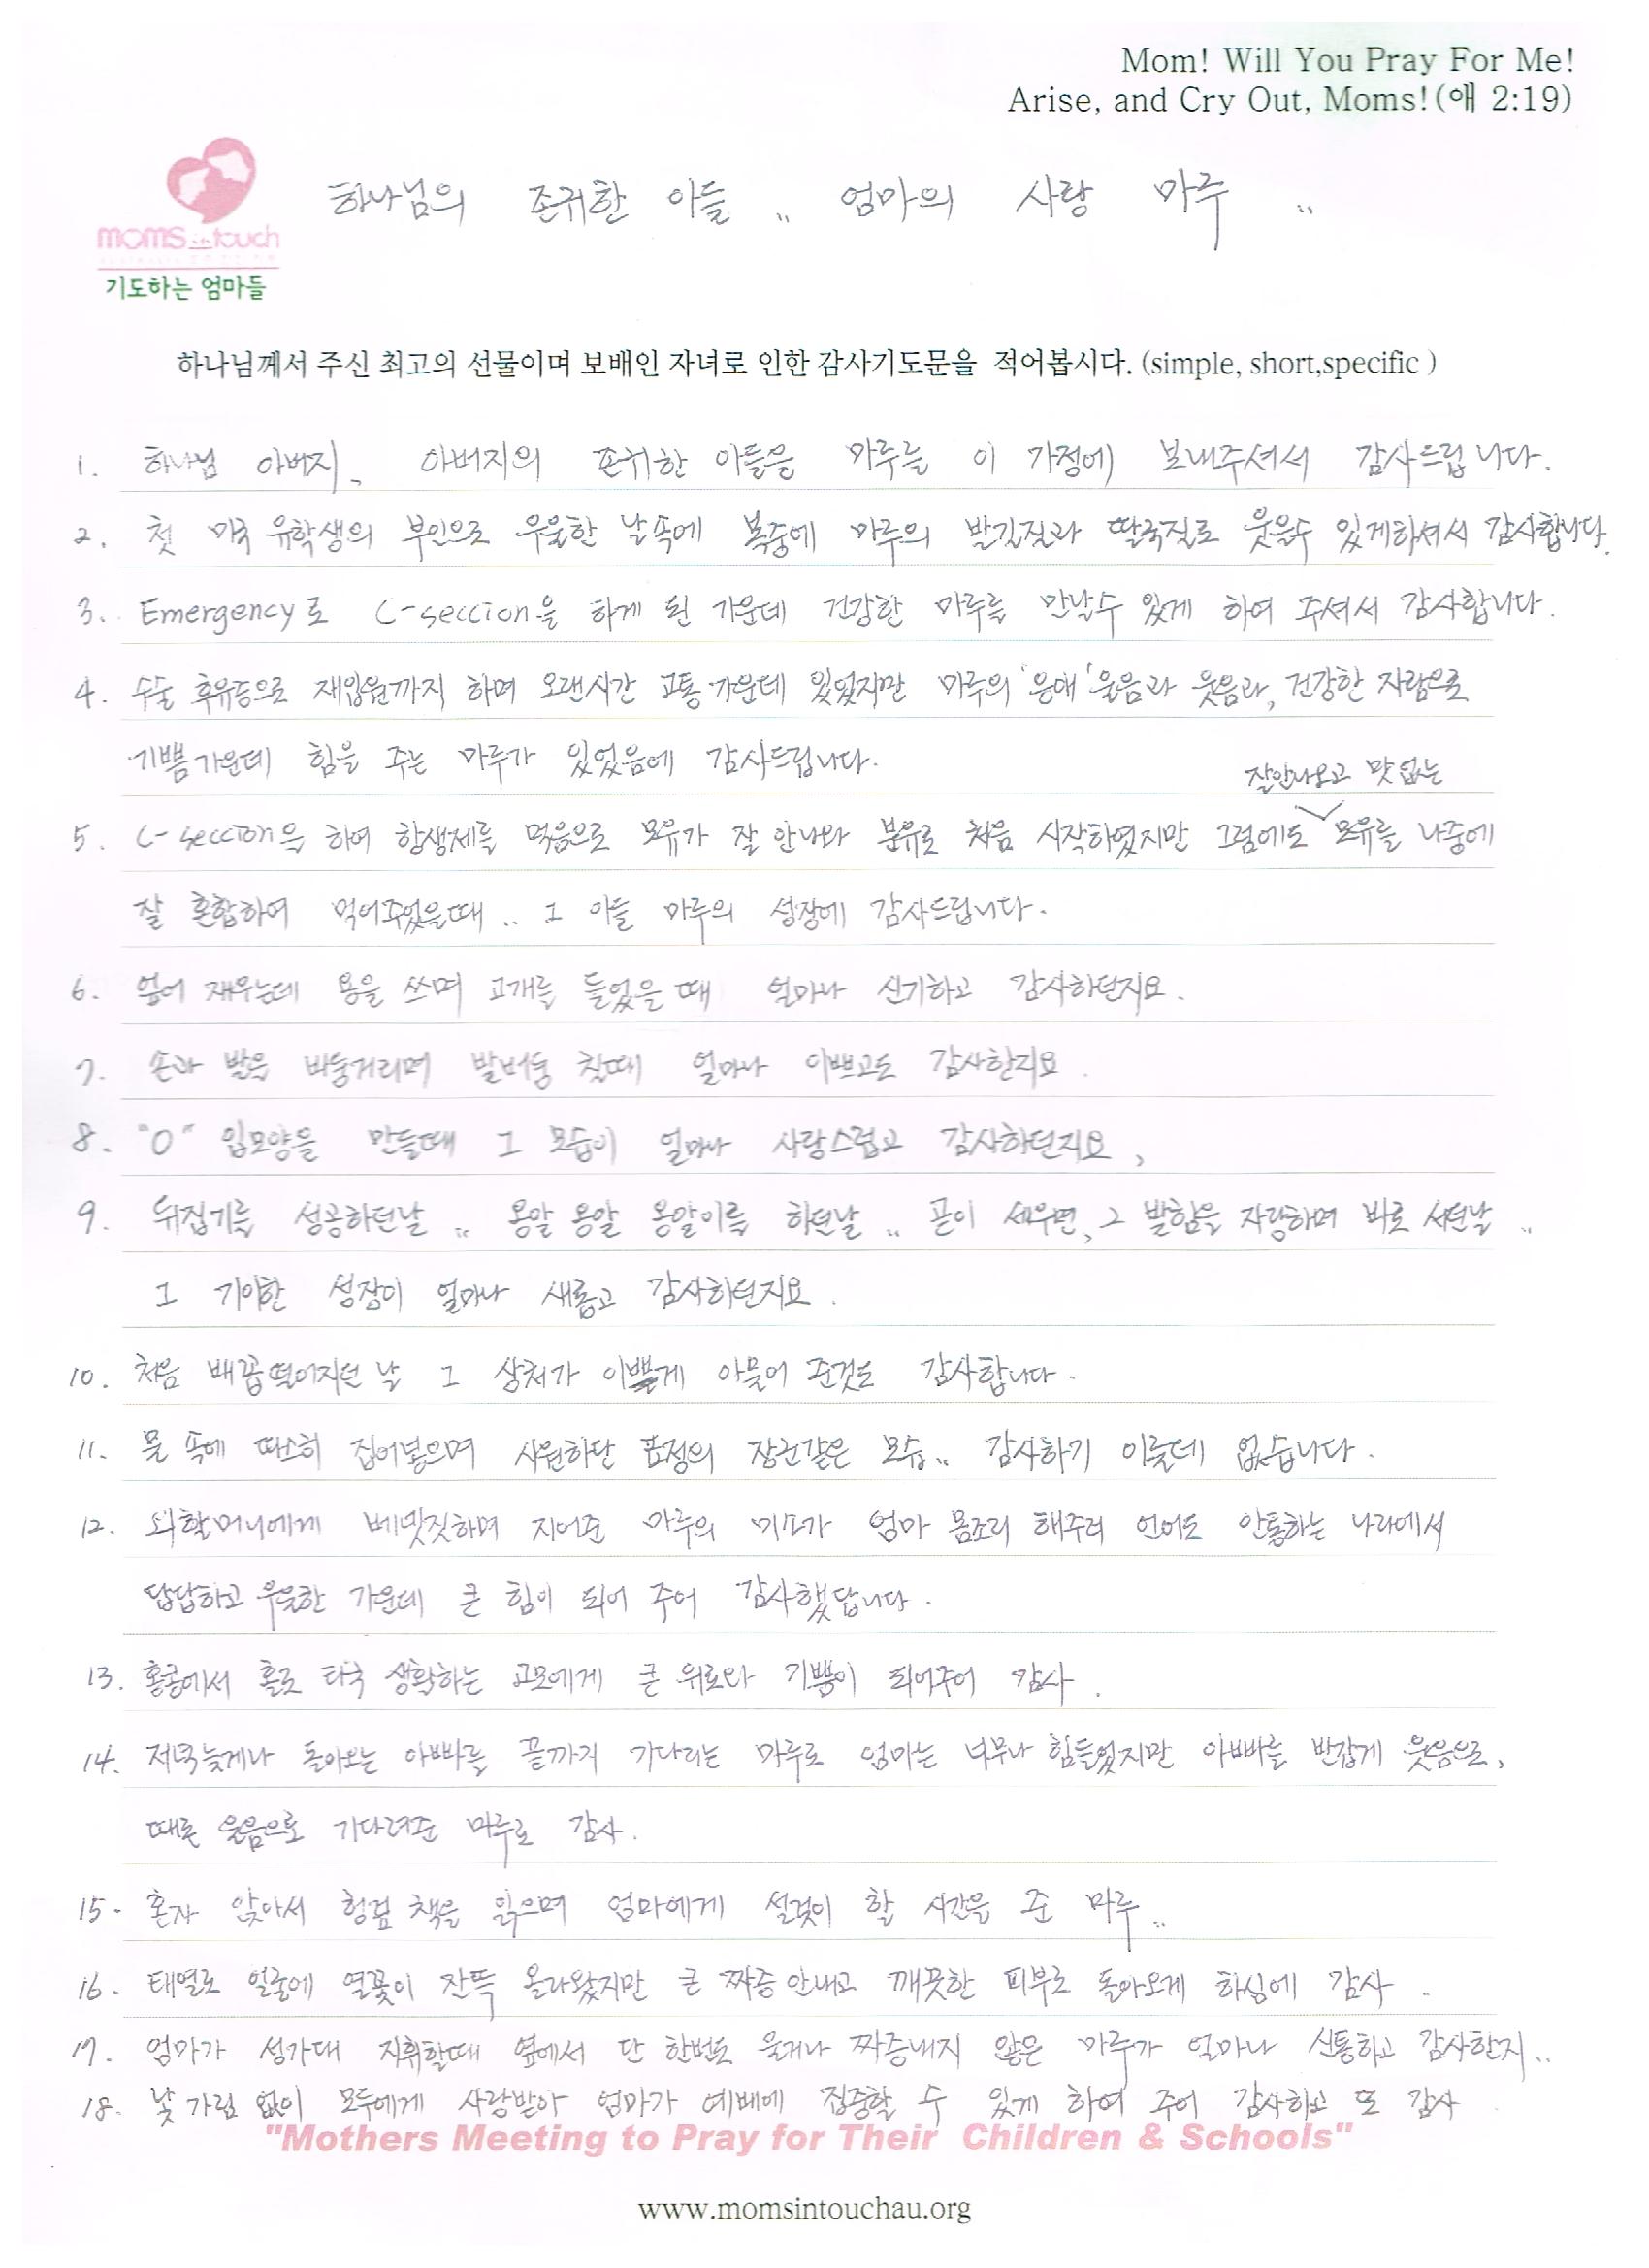 Mom! Will You Pray For Me!
Arise, and Cry Out, Moms!(애 2:19)
하나님의 존귀한 아들 .. 엄마의 사랑 마루 ..
moms in touch
기도하는 엄마들
하나님께서 주신 최고의 선물이며 보배인 자녀로 인한 감사기도문을 적어봅시다. (simple, short,specific )
1. 하나님 아버지, 아버지의 존귀한 아들을 마루를 이 가정에 보내주셔서 감사드립니다.
2. 첫 미국 유학생의 부인으로 우울한 날 속에 복중에 마루의 발길질과 딸국질로 웃을수 있게하셔서 감사합니다.
3. Emergency로 C-seccion을 하게 된 가운데 건강한 마루를 만날수 있게 하여 주셔서 감사합니다.
4. 수술 후유증으로 재입원까지 하며 오랜시간 고통 가운데 있었지만 마루의 '응애' 울음과 웃음과, 건강한 자람으로
기쁨가운데 힘을 주는 마루가 있었음에 감사드립니다.
잘안나오고 맛없는
5. C-seccion을 하여 항생제를 먹음으로 모유가 잘 안나와 분유로 처음 시작하였지만 그럼에도 모유를 나중에
잘 혼합하여 먹어주었을때 .. 그 아들 마루의 성장에 감사드립니다.
6. 엎어 재우는데 용을 쓰며 고개를 들었을 때 얼마나 신기하고 감사하던지요.
7. 손과 발을 바둥거리며 발버둥 칠때 얼마나 이쁘고도 감사한지요.
8. "O" 입모양을 만들때 그 모습이 얼마나 사랑스럽고 감사하던지요,
9. 뒤집기를 성공하던날 .. 옹알 옹알 옹알이를 하던날 .. 곧이 세우면, 그 발힘을 자랑하며 바로 서던날 ..
그 기이한 성장이 얼마나 새롭고 감사하던지요.
10. 처음 배꼽떨어지던 날 그 상처가 이쁘게 아물어 준것도 감사합니다.
11. 물 속에 따스히 집어넣으며 시원하단 표정의 장군같은 모습.. 감사하기 이를데 없습니다.
12. 외할머니에게 베넷짓하며 지어준 마루의 미소가 엄마 몸조리 해주러 언어도 안통하는 나라에서
답답하고 우울한 가운데 큰 힘이 되어 주어 감사했답니다.
13. 홍콩에서 홀로 타국 생활하는 고모에게 큰 위로와 기쁨이 되어주어 감사.
14. 저녁늦게나 돌아오는 아빠를 끝까지 기다리는 마루로 엄마는 너무나 힘들었지만 아빠를 반갑게 웃음으로,
때론 울음으로 기다려준 마루로 감사.
15. 혼자 앉아서 헝겊 책을 읽으며 엄마에게 설겆이 할 시간을 준 마루..
16. 태열로 얼굴에 열꽃이 잔뜩 올라왔지만 큰 짜증 안내고 깨끗한 피부로 돌아오게 하심에 감사.
17. 엄마가 성가대 지휘할때 옆에서 단 한번도 울거나 짜증내지 않은 마루가 얼마나 신통하고 감사한지..
18. 낯 가림 없이 모두에게 사랑받아 엄마가 예배에 집중할 수 있게 하여 주어 감사하고 또 감사
"Mothers Meeting to Pray for Their Children & Schools"
www.momsintouchau.org